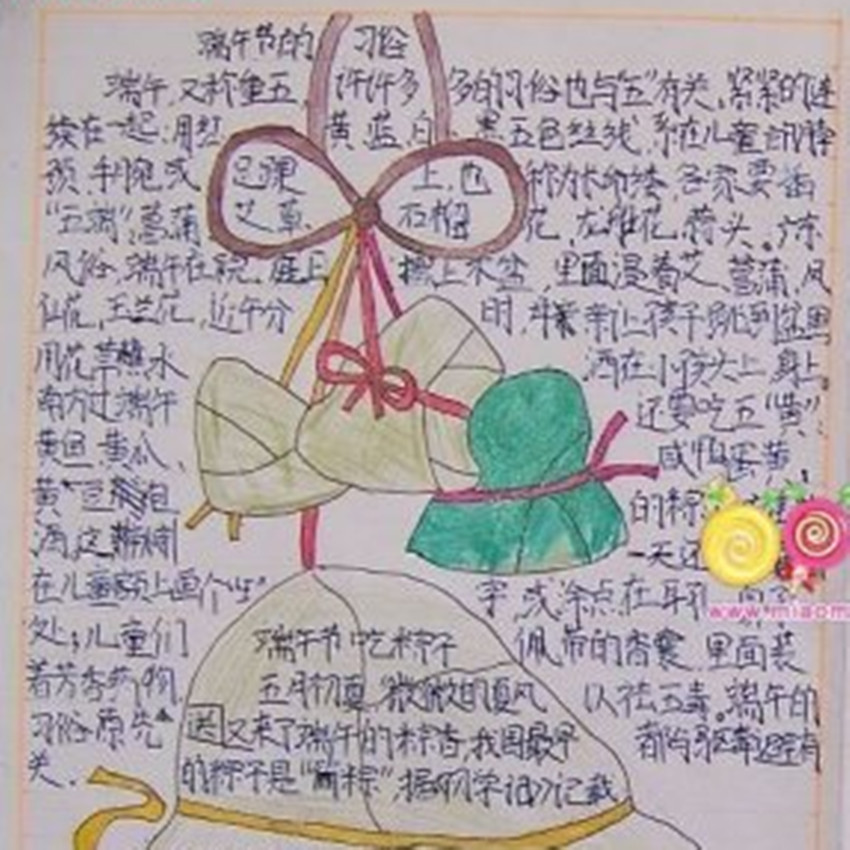 端午节的 习俗
端午,又称重五,许许多多的习俗也与"五"有关,紧紧的连
续在一起:用红 黄、蓝、白、黑五色丝线,系在儿童的脖
颈、手腕或 足踝 上,也 称为长命缕,各家要插
"五端":菖蒲 艾草、石榴 花、 头。广东
风俗,端午在院、庭上 摆上水盆,里面浸着艾、菖蒲、凤
仙花、玉兰花,近午分 时, 亲让孩子跳到盆里
用花草 水 洒在小孩头上身上。
南方过端午 还要吃五"黄":
黄鱼、黄瓜、 咸鸭蛋黄、
黄豆 包 的粽
酒,这 一天还
在儿童额上画个"王" 字,或涂点在耳孔
处;儿童们 佩带的香囊,里面装
着芳香药物, 以祛五毒。端午的
习俗原先 都与驱毒避 有
关。
端午节吃粽子
五月初夏,微微的夏风
送又来了端午的粽香,我国最早
的粽子是" 粽",据 学记》记载
www.miaom